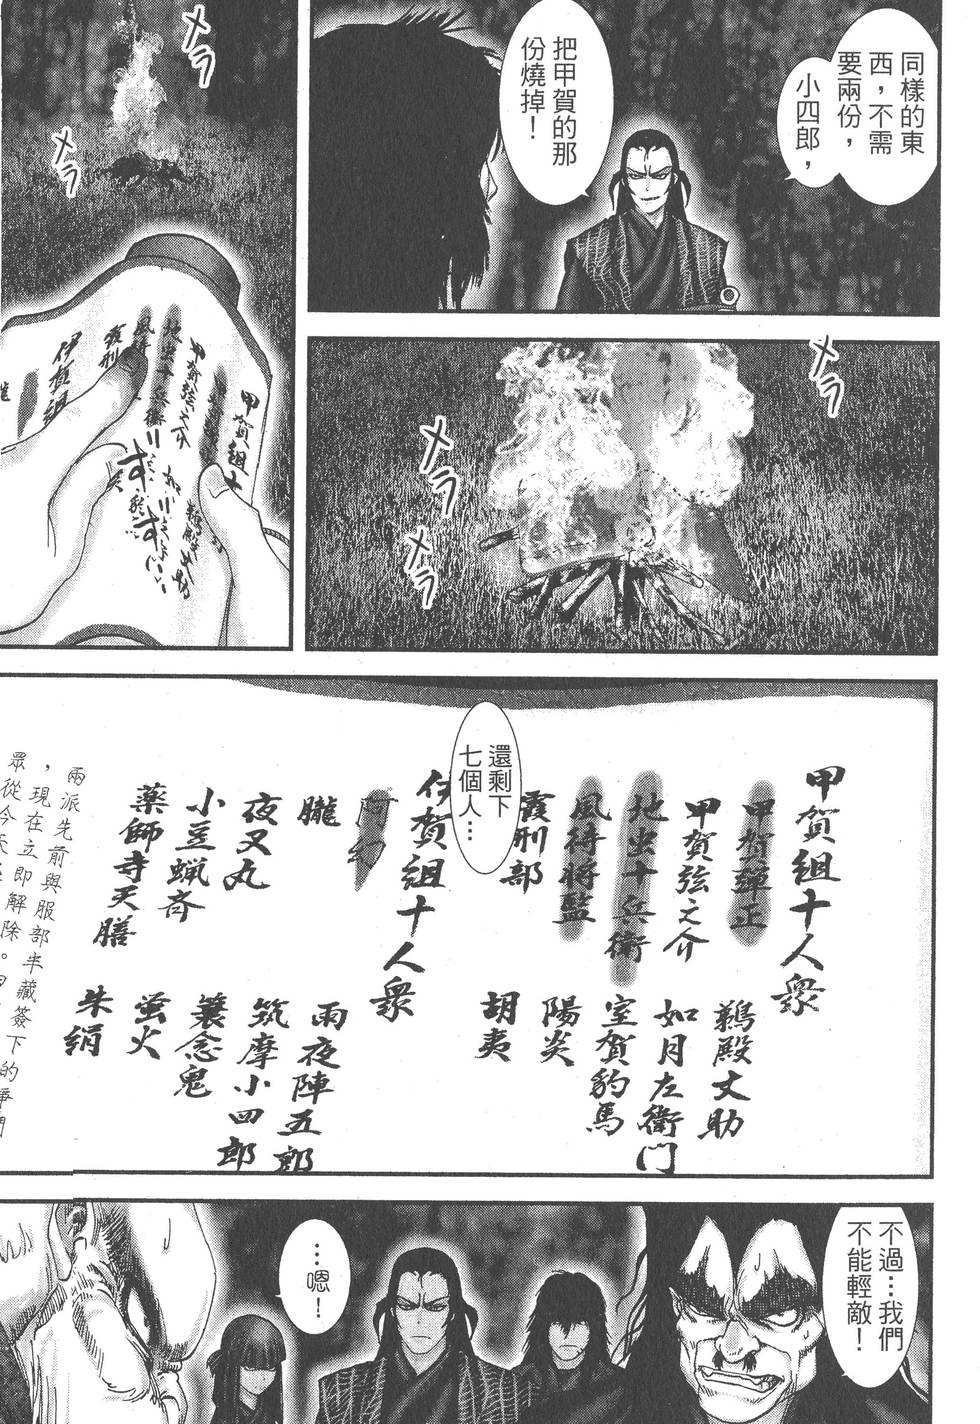 同樣的東
西，不需
要兩份，
小四郎，
把甲賀的那
份燒掉！
メラ
メラ
メラ
メラ
メラ
甲賀組十
甲賀弦之介
地虫十兵衛
風待
霞刑
伊賀組
朧
還剩下
七個人…
甲賀組十人衆
甲賀彈正
甲賀弦之介
地虫十兵衛
風待将監
霞刑部
鵜殿丈助
如月左衛門
室賀豹馬
陽炎
胡夷
伊賀組十人衆
阿幻
朧
夜叉丸
小豆蝋斉
薬師寺天膳
雨夜陣五郎
筑摩小四郎
簑念鬼
蛍火
朱絹
兩派先前與服部半藏簽下的
，現在立即解除。
眾從今天
不過…我們
不能輕敵！
…嗯！